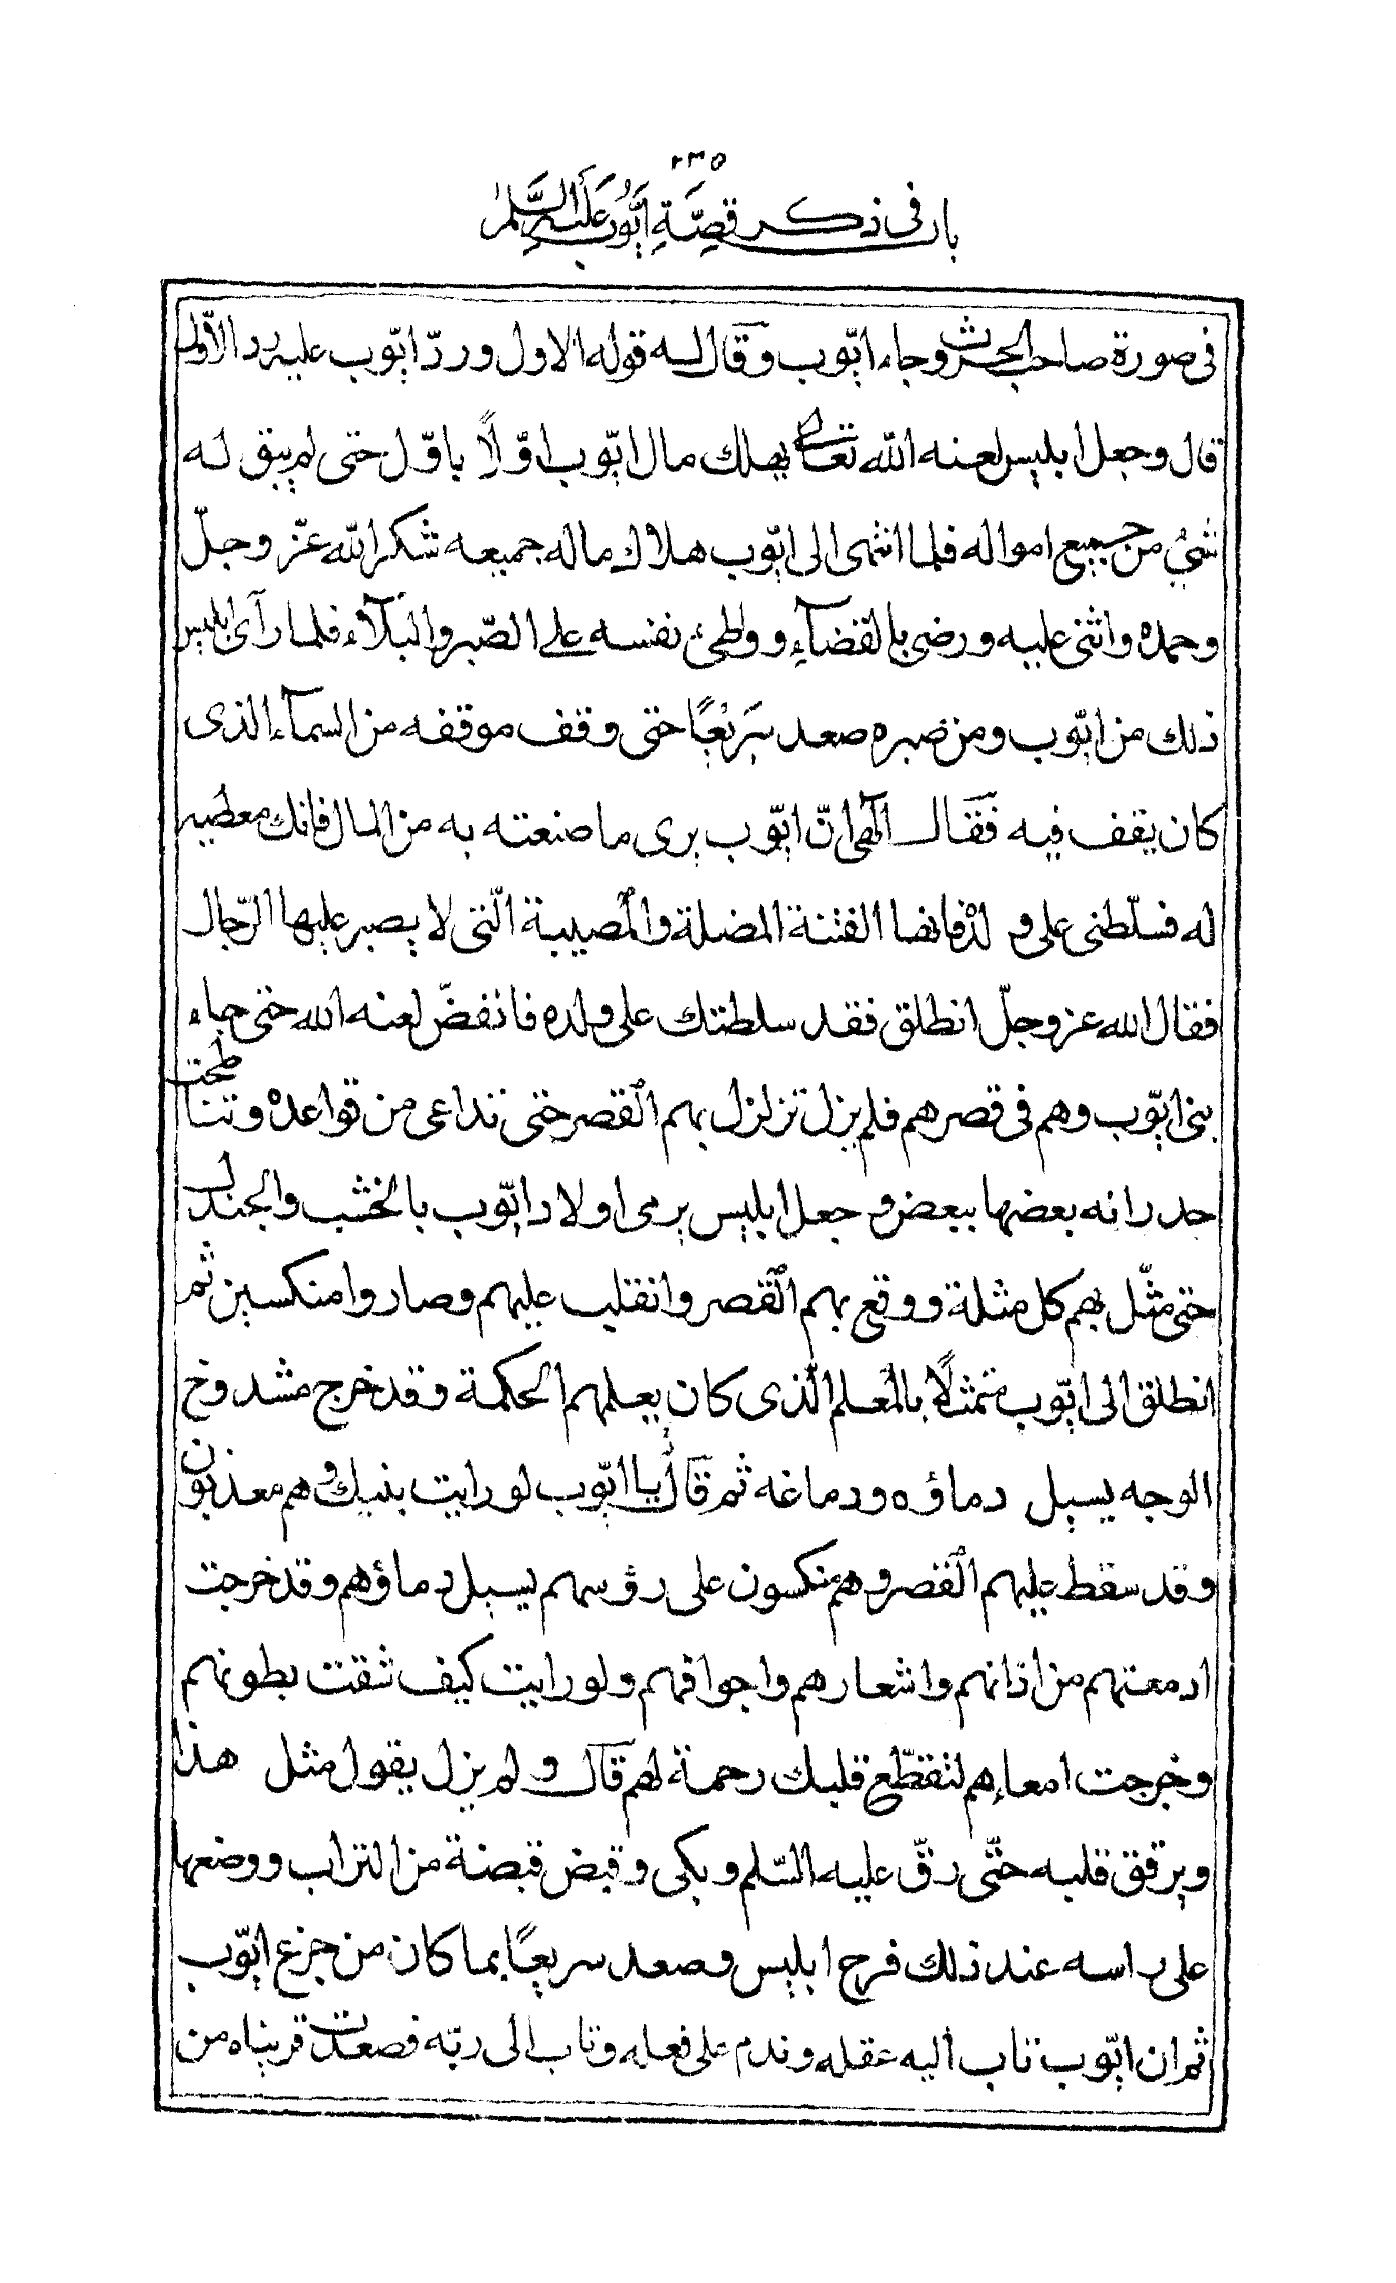 ٢٣٥
باب فى ذكر قصّة ايّوب عليه السّلم
فى صورة صاحب الحرث وجاء ايّوب وقال له قوله الاول وردّ ايّوب عليه رد الاوّل
قال وجعل ابليس لعنه الله تعالى يهلك مال ايّوب اوّلاً باوّل حتى لم يبق له
شئ من جميع امواله فلما انتهى الى ايّوب هلاك ماله جميعه شكر الله عزّ وجلّ
وحمده واثنى عليه ورضى بالقضآء ووطئ نفسه على الصّبر والبلآء فلما رآى ابليس
ذلك من ايّوب ومن صبره صعد سريعًا حتى وقف موقفه من السمآء الذى
كان يقف فيه فقال الهى انّ ايّوب يرى ما صنعته به من المال فانك معطيه
له فسلّطنى على ولده فانها الفتنة المضلة والمصيبة الّتى لا يصبر عليها الرّجال
فقال الله عز وجلّ انطلق فقد سلطتك على ولده فانفضّ لعنه الله حتى جاء
بنى ايّوب وهم فى قصرهم فلم يزل تزلزل بهم القصر حتى تداعى من قواعده وتناطحت
جدرانه بعضها ببعض وجعل ابليس يرمى اولاد ايّوب بالخشب والجندل
حتى مثّل بهم كل مثلة ووقع بهم القصر وانقلب عليهم وصاروا منكسين ثم
انطلق الى ايّوب متمثلاً بالمعلم الّذى كان يعلمهم الحكمة وقد خرج مشدوخ
الوجه يسيل دماؤه ودماغه ثم قال يا ايّوب لو رايت بنيك وهم معذبون
وقد سقط عليهم القصر وهم منكسون على رؤسهم يسيل دماؤهم وقد خرجت
ادمعتهم من اذانهم واشعارهم واجوافهم ولو رايت كيف شقت بطونهم
وخرجت امعاءهم لتقطّع قلبك رحمة لهم قال ولم يزل يقول مثل هذا
ويرقق قلبه حتّى رقّ عليه السّلم وبكى وقبض قبضة من التراب ووضعها
على راسه عند ذلك فرح ابليس وصعد سريعًا بما كان من جزع ايّوب
ثم ان ايّوب تاب اليه عقله وندم على فعله وتاب الى ربّه فصعدت قريناه من